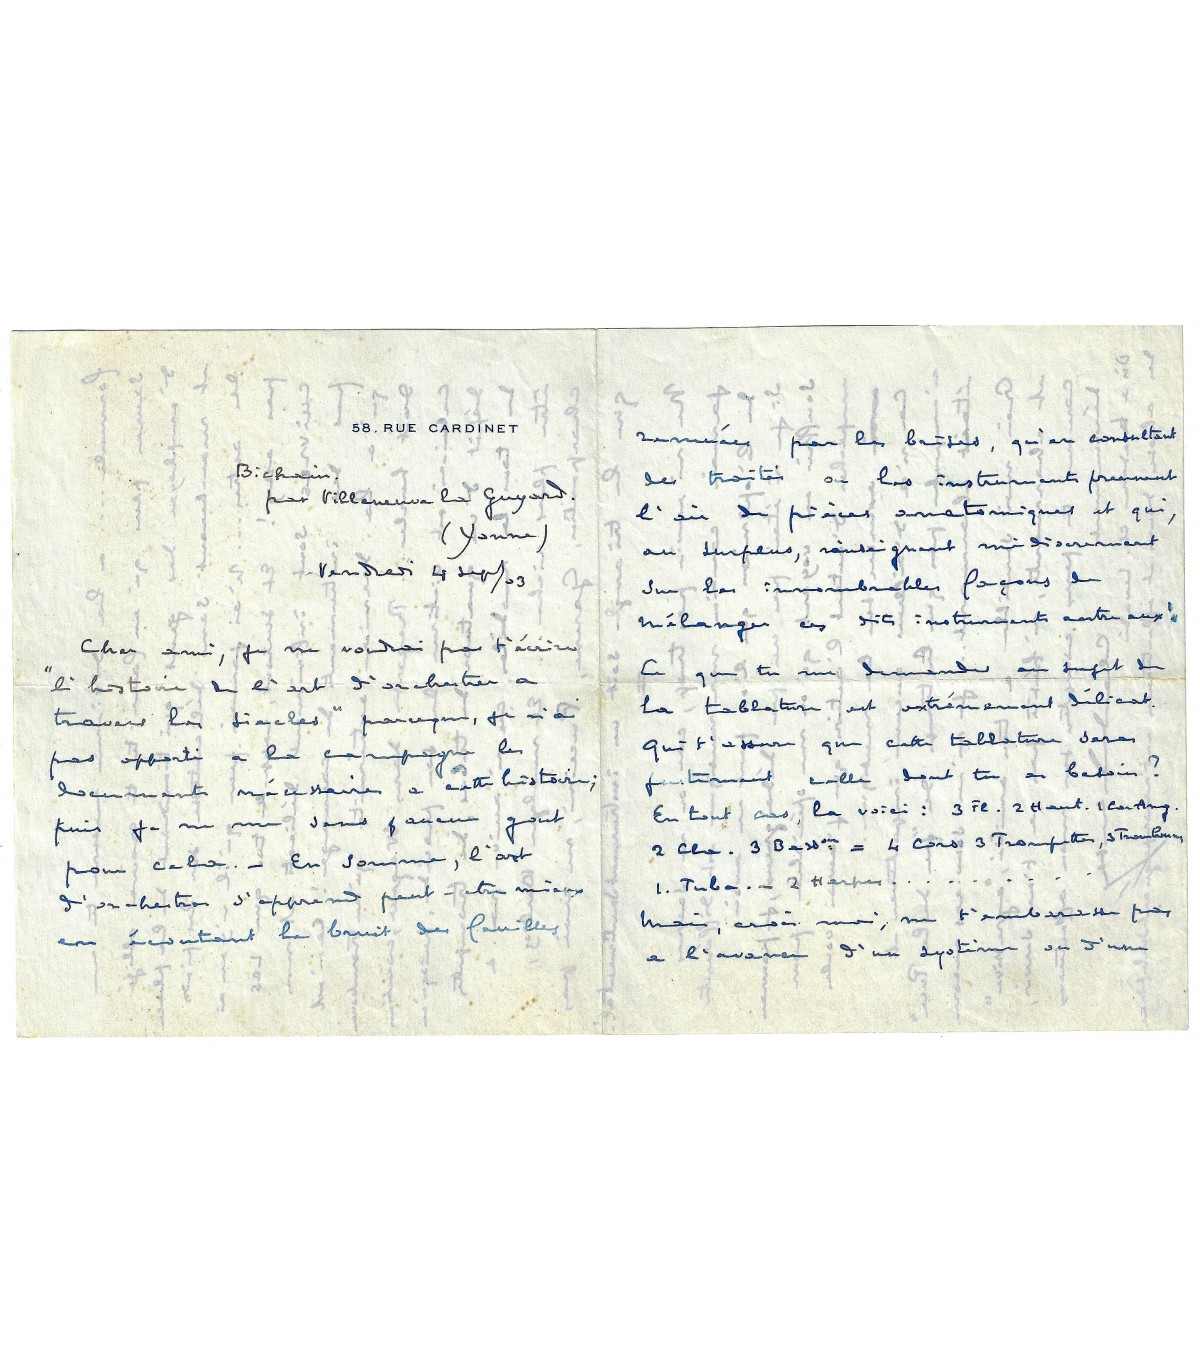 58. RUE CARDINET
Bichain.
par Villeneuve la Guyard.
(Yonne)
Vendredi 4 Sept/03
Cher ami, je ne voudrai pas t'écrire
"l'histoire de l'art d'orchestrer a
travers les siècles" parceque, je n'ai
pas apporté a la campagne les
documents nécessaires a cette histoire;
puis je ne me sens aucun gout
pour cela. — En somme, l'art
d'orchestrer s'apprend peut-etre mieux
en écoutant le bruit des feuilles
remuées par les brises, qu'en consultant
des traités ou les instruments prennent
l'air de pièces anatomiques et qui,
au surplus, renseignent médiocrement
sur les innombrables façons de
mélanger ces dits instruments entre eux!
Ce que tu me demandes au sujet de
la tablature est extrémement délicat.
Qui t'assure que cette tablature sera
justement celle dont tu as besoin?
En tout cas, la voici : 3 Fl. 2 Haut. 1 Cor Ang.
2 Cla. 3 Bassons = 4 Cors 3 Trompettes, 3 Trombones,
1. Tuba. — 2 Harpes . . . . . . . . . .
Mais, crois moi, ne t'embarasse pas
a l'avance d'un système ou d'une